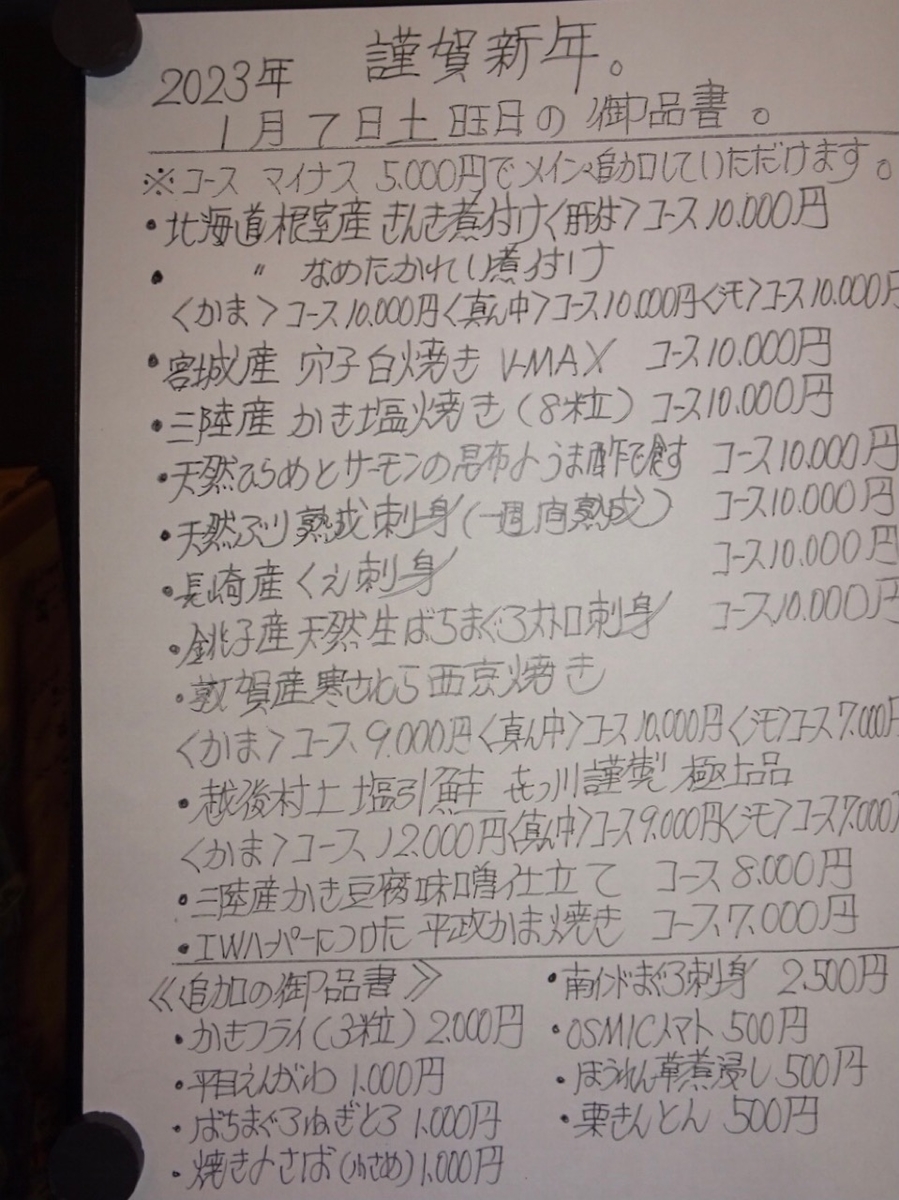 謹賀新年。
2023年
1月7日土曜日の御品書。
※コース マイナス 5.000円でメイン追加していただけます。
・北海道根室産 きんき煮付け〈肝付〉コース10.000円
・ 〃 なめたかれい煮付け
〈かま〉コース10.000円〈真ん中〉コース10.000円〈シモ〉コース10.000円
・宮城産 穴子白焼き V-MAX コース10.000円
・三陸産 かき塩焼き(8粒) コース10.000円
・天然ひらめとサーモンの昆布〆うま酢で食す コース10.000円
・天然ぶり熟成刺身(一週間熟成) コース10.000円
・長崎産 くえ刺身 コース10.000円
・銚子産天然生ばちまぐろ大トロ刺身 コース10.000円
・敦賀産寒さわら西京焼き
〈かま〉コース9.000円〈真ん中〉コース10.000円〈シモ〉コース7.000円
・越後村上塩引鮭 㐂っ川謹製 極上品
〈かま〉コース12.000円〈真ん中〉コース9.000円〈シモ〉コース7.000円
・三陸産かき豆腐味噌仕立て コース8.000円
・IWハーパーにつけた平政かま焼き コース7.000円
《追加の御品書》
・かきフライ(3粒) 2.000円
・平目えんがわ 1.000円
・ばちまぐろねぎとろ 1.000円
・焼き〆さば(小さめ) 1.000円
・南インドまぐろ刺身 2.500円
・OSMICトマト 500円
・ほうれん草煮浸し 500円
・栗きんとん 500円